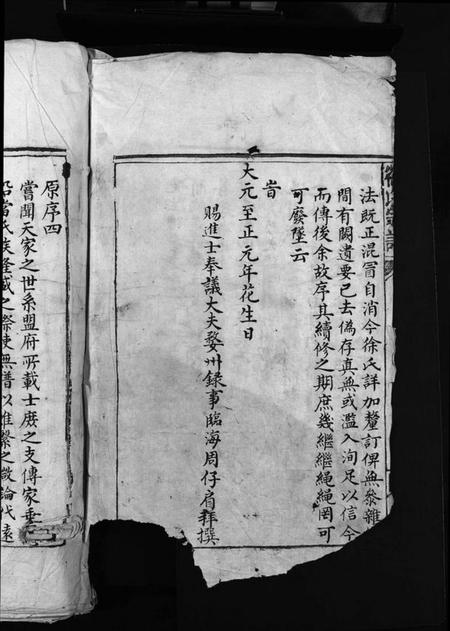 法既正混冒自消今徐氏詳加釐訂俾無參雜
間有闕遺要已去偽存真無或濫入洵足以信今
而傳後余故序其續修之期庶幾繼繼繩繩罔可
可廢墜云
旹
大元至正元年花生日
賜進士奉議大夫婺州錄事臨海周仔肩拜撰
原序四
嘗聞天家之世系盟府所載士庶之支傳家乗
沿當氏族隆盛之際使無譜以維繫之微論代遠